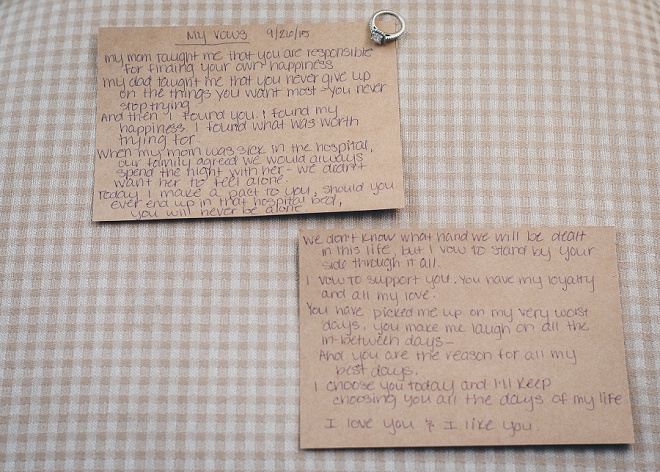 My Vows 9/26/15
my mom taught me that you are responsible
for finding your own happiness
my dad taught me that you never give up
on the things you want most - you never
stop trying
And then I found you. I found my
happiness. I found what was worth
trying for.
When my mom was sick in the hospital,
our family agreed we would always
spend the night with her - we didn't
want her to feel alone.
Today I make a pact to you, should you
ever end up in that hospital bed,
you will never be alone
We don't know what hand we will be dealt
in this life, but I vow to stand by your
side through it all.
I vow to support you. You have my loyalty
and all my love.
You have picked me up on my very worst
days, you make me laugh on all the
in-between days-
And you are the reason for all my
best days.
I choose you today and I'll keep
choosing you all the days of my life
I love you & I like you.